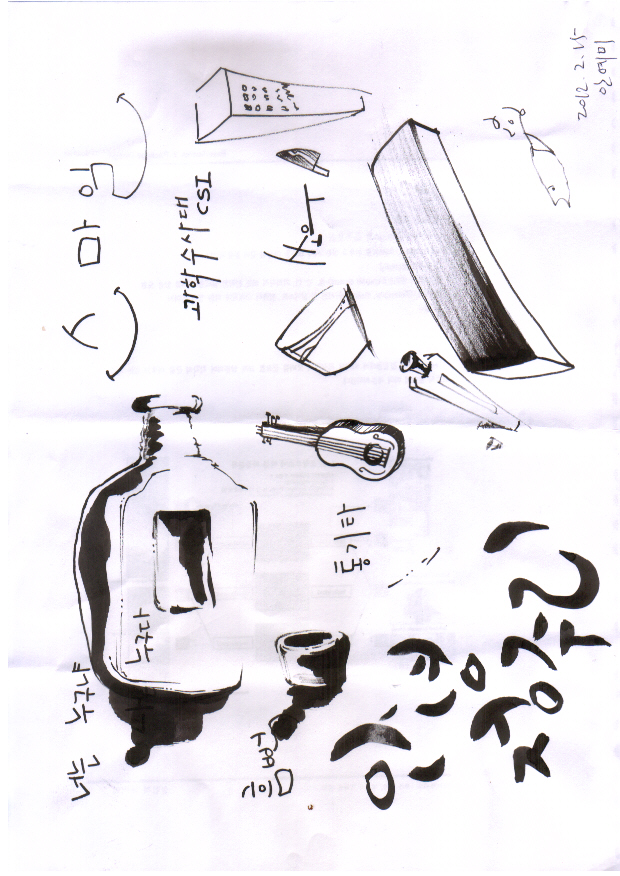 너는 누구냐
나는 누구다
스마일
과학수사대
CSI
흠뻑
소우
통기타
안녕
정주리
2012. 2. 15
안예미